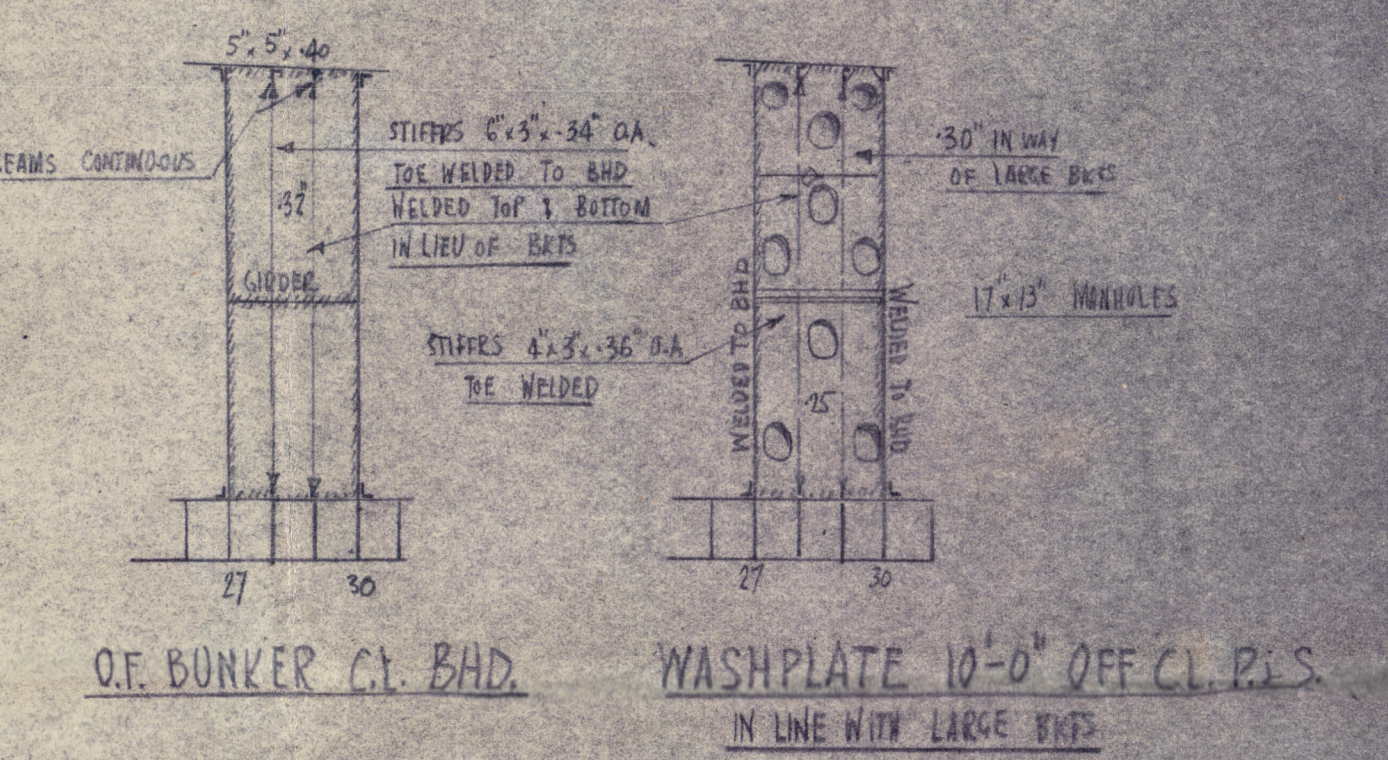 5" x 5" x .40
EAMS CONTINOUS
STIFFRS 6"x3"x.34" O.A.
TOE WELDED TO BHD
WELDED TOP & BOTTOM
IN LIEU OF BKTS
.32"
GIRDER
STIFFRS 4"x3"x.36" O.A
TOE WELDED
27
30
O.F. BUNKER C.L. BHD.
.30" IN WAY
OF LARGE BKTS
17"x13" MANHOLES
WELDED TO BHD
WELDED TO BHD
.25
27
30
WASHPLATE 10'-0" OFF CL. P.&S.
IN LINE WITH LARGE BKTS